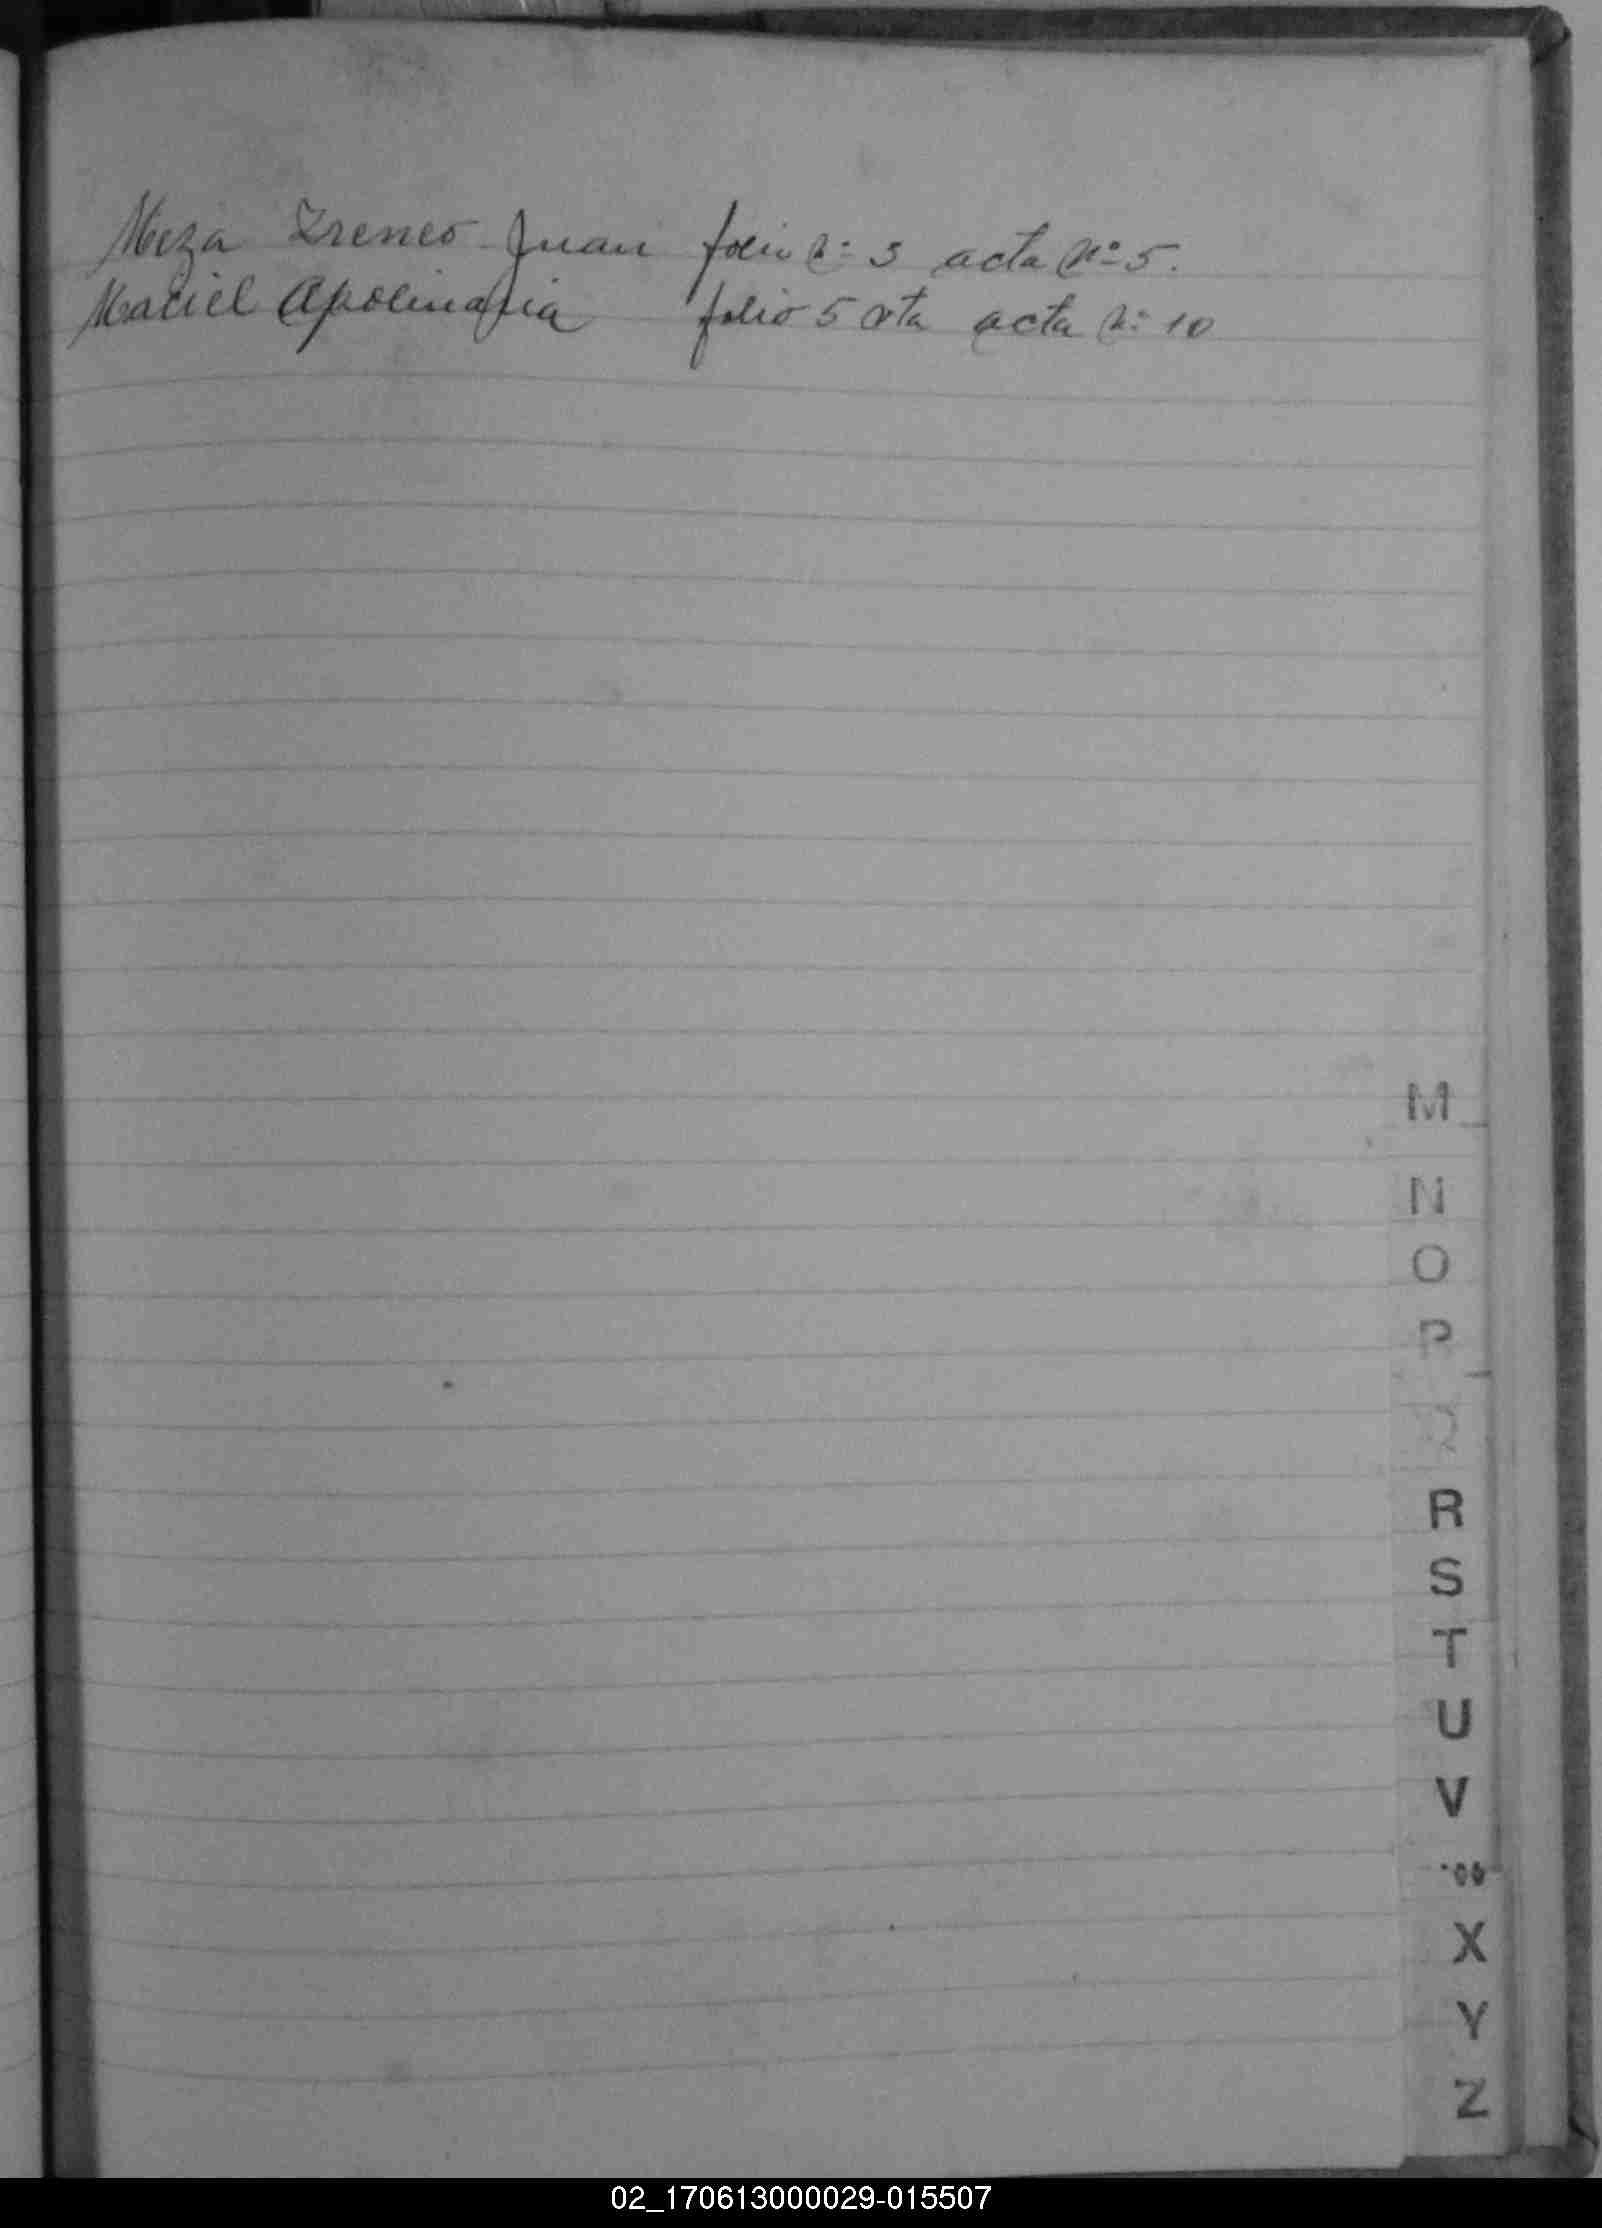 Meza Ireneo Juan folio Nº 3 acta Nº 5.
Maciel Apolinaria folio 5 vta acta Nº 10
M
N
O
P
Q
R
S
T
U
V
X
Y
Z
02_170613000029-015507